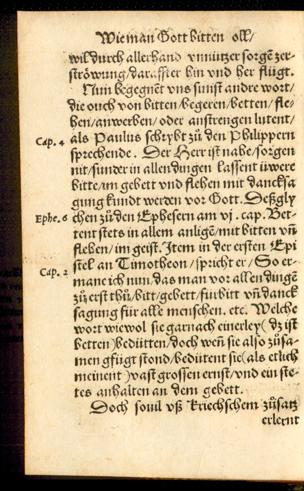 Wie man Gott bitten oll/
wil durch allerhand vnnützer sorgẽ zer-
ströwung/dar affter hin vnd her flügt.
Nun begegnet vns sunst andre wort/
die ouch von bitten/begeren/betten/fle-
hen/anwerben/oder anstrengen lutent/
Cap. 4 als Paulus schrybt zů den Philippern
sprechende. Der Herr ist nahe/sorgen
nit/sunder in allen dingen lassent üwere
bitte/im gebett vnd flehen mit dancksa
gung kundt werden vor Gott. Deßgly
Ephe. 6 chen zů den Ephesern am vj. cap. Bet-
tent stets in allem anligẽ/mit bitten vñ
flehen/im geist. Item in der ersten Epi
Cap. 2 stel an Timotheon/spricht er/So er-
mane ich nun das man vor allen dingẽ
zů erst thü/bitt/gebett/fürbitt vñ danck
sagung für alle menschen. etc. Welche
wort wiewol sie gar nach einerley (dz ist
betten) bedütten/doch weñ sie also zůsa-
men gfügt stond/bedütent sie (als etlich
meinent) vast grossen ernst/vnd ein ste-
tes anhalten an dem gebett.
Doch souil vß Kriechschem zůsatz
erlernt